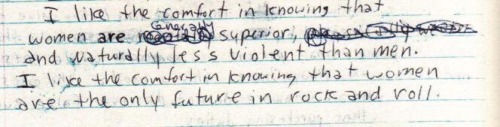 I like the comfort in knowing that
women are generally superior,
and naturally less violent than men.
I like the comfort in knowing that women
are the only future in rock and roll.